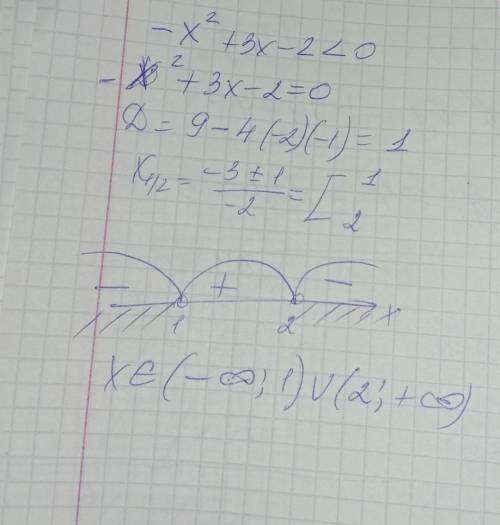 -x² + 3x - 2 < 0
-x² + 3x - 2 = 0
D = 9 - 4(-2)(-1) = 1
x₁/₂ = (-3 ± 1)/(-2) = [ 1 2
- + -
1 2 x
x ∈ (-∞; 1) ∪ (2; +∞)